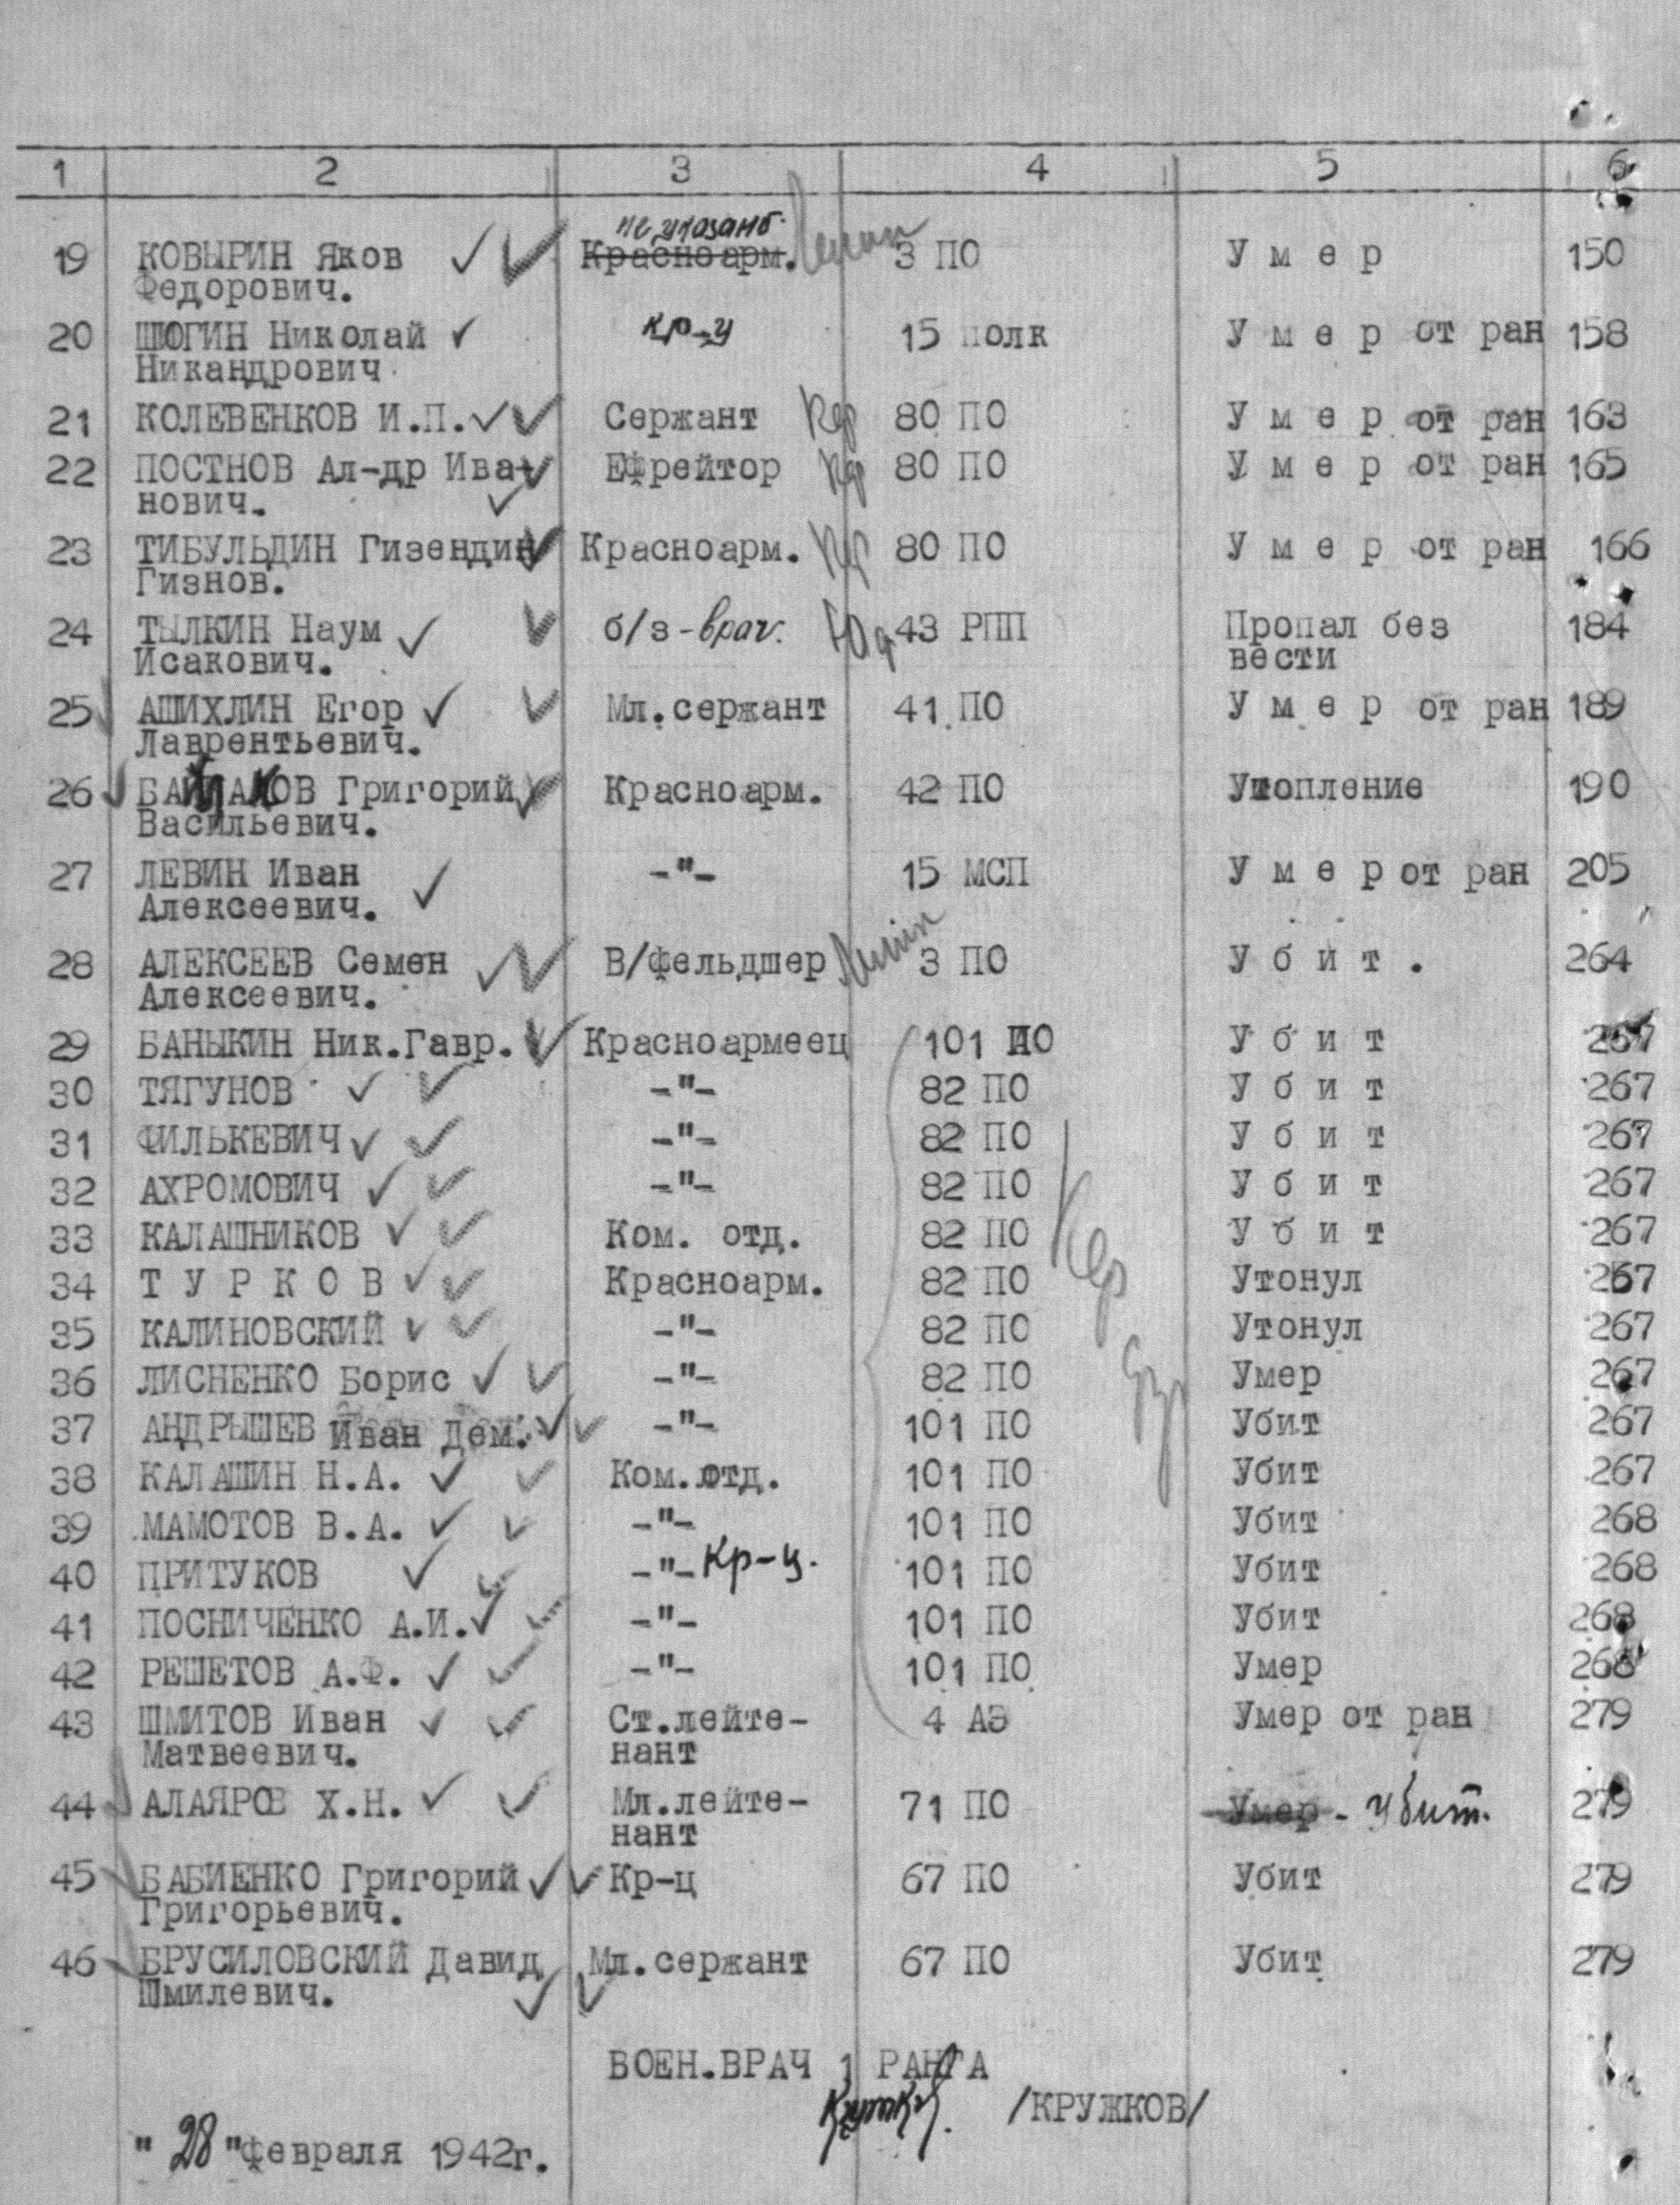 1 2 3 4 5 6
не указано
19 КОВЫРИН Яков Красноарм. 3 ПО Умер 150
Федорович.
20 ШЮГИН Николай кр-ц 15 полк Умер от ран 158
Никандрович
21 КОЛЕВЕНКОВ И.П. Сержант Кер 80 ПО Умер от ран 163
22 ПОСТНОВ Ал-др Ива- Ефрейтор Кер 80 ПО Умер от ран 165
нович.
23 ТИБУЛЬДИН Гизендин Красноарм. Кер 80 ПО Умер от ран 166
Гизнов.
24 ТЫЛКИН Наум б/з - врач. 43 РПП Пропал без 184
Исакович. вести
25 АШИХЛИН Егор Мл.сержант 41 ПО Умер от ран 189
Лаврентьевич.
26 Григорий Красноарм. 42 ПО Утопление 190
Васильевич.
27 ЛЕВИН Иван -"- 15 МСП Умер от ран 205
Алексеевич.
28 АЛЕКСЕЕВ Семен В/фельдшер 3 ПО Убит. 264
Алексеевич.
29 БАНЫКИН Ник.Гавр. Красноармеец 101 ПО Убит 267
30 ТЯГУНОВ -"- 82 ПО Убит 267
31 ФИЛЬКЕВИЧ -"- 82 ПО Убит 267
32 АХРОМОВИЧ -"- 82 ПО Убит 267
33 КАЛАШНИКОВ Ком. отд. 82 ПО Убит 267
34 ТУРКОВ Красноарм. 82 ПО Кер Утонул 267
35 КАЛИНОВСКИЙ -"- 82 ПО Утонул 267
36 ЛИСНЕНКО Борис -"- 82 ПО Умер 267
37 АНДРЫШЕВ Иван Дем. -"- 101 ПО Убит 267
38 КАЛАШИН Н.А. Ком.отд. 101 ПО Убит 267
39 МАМОТОВ В.А. -"- 101 ПО Убит 268
40 ПРИТУКОВ -"- Кр-ц. 101 ПО Убит 268
41 ПОСНИЧЕНКО А.И. -"- 101 ПО Убит 268
42 РЕШЕТОВ А.Ф. -"- 101 ПО Умер 268
43 ШМИТОВ Иван Ст.лейте- 4 АЭ Умер от ран 279
Матвеевич. нант
44 АЛАЯРОВ Х.Н. Мл.лейте- 71 ПО Умер - убит. 279
нант
45 БАБИЕНКО Григорий Кр-ц 67 ПО Убит 279
Григорьевич.
46 БРУСИЛОВСКИЙ Давид Мл.сержант 67 ПО Убит 279
Шмилевич.
ВОЕН.ВРАЧ 1 РАНГА
/КРУЖКОВ/
"28" февраля 1942г.